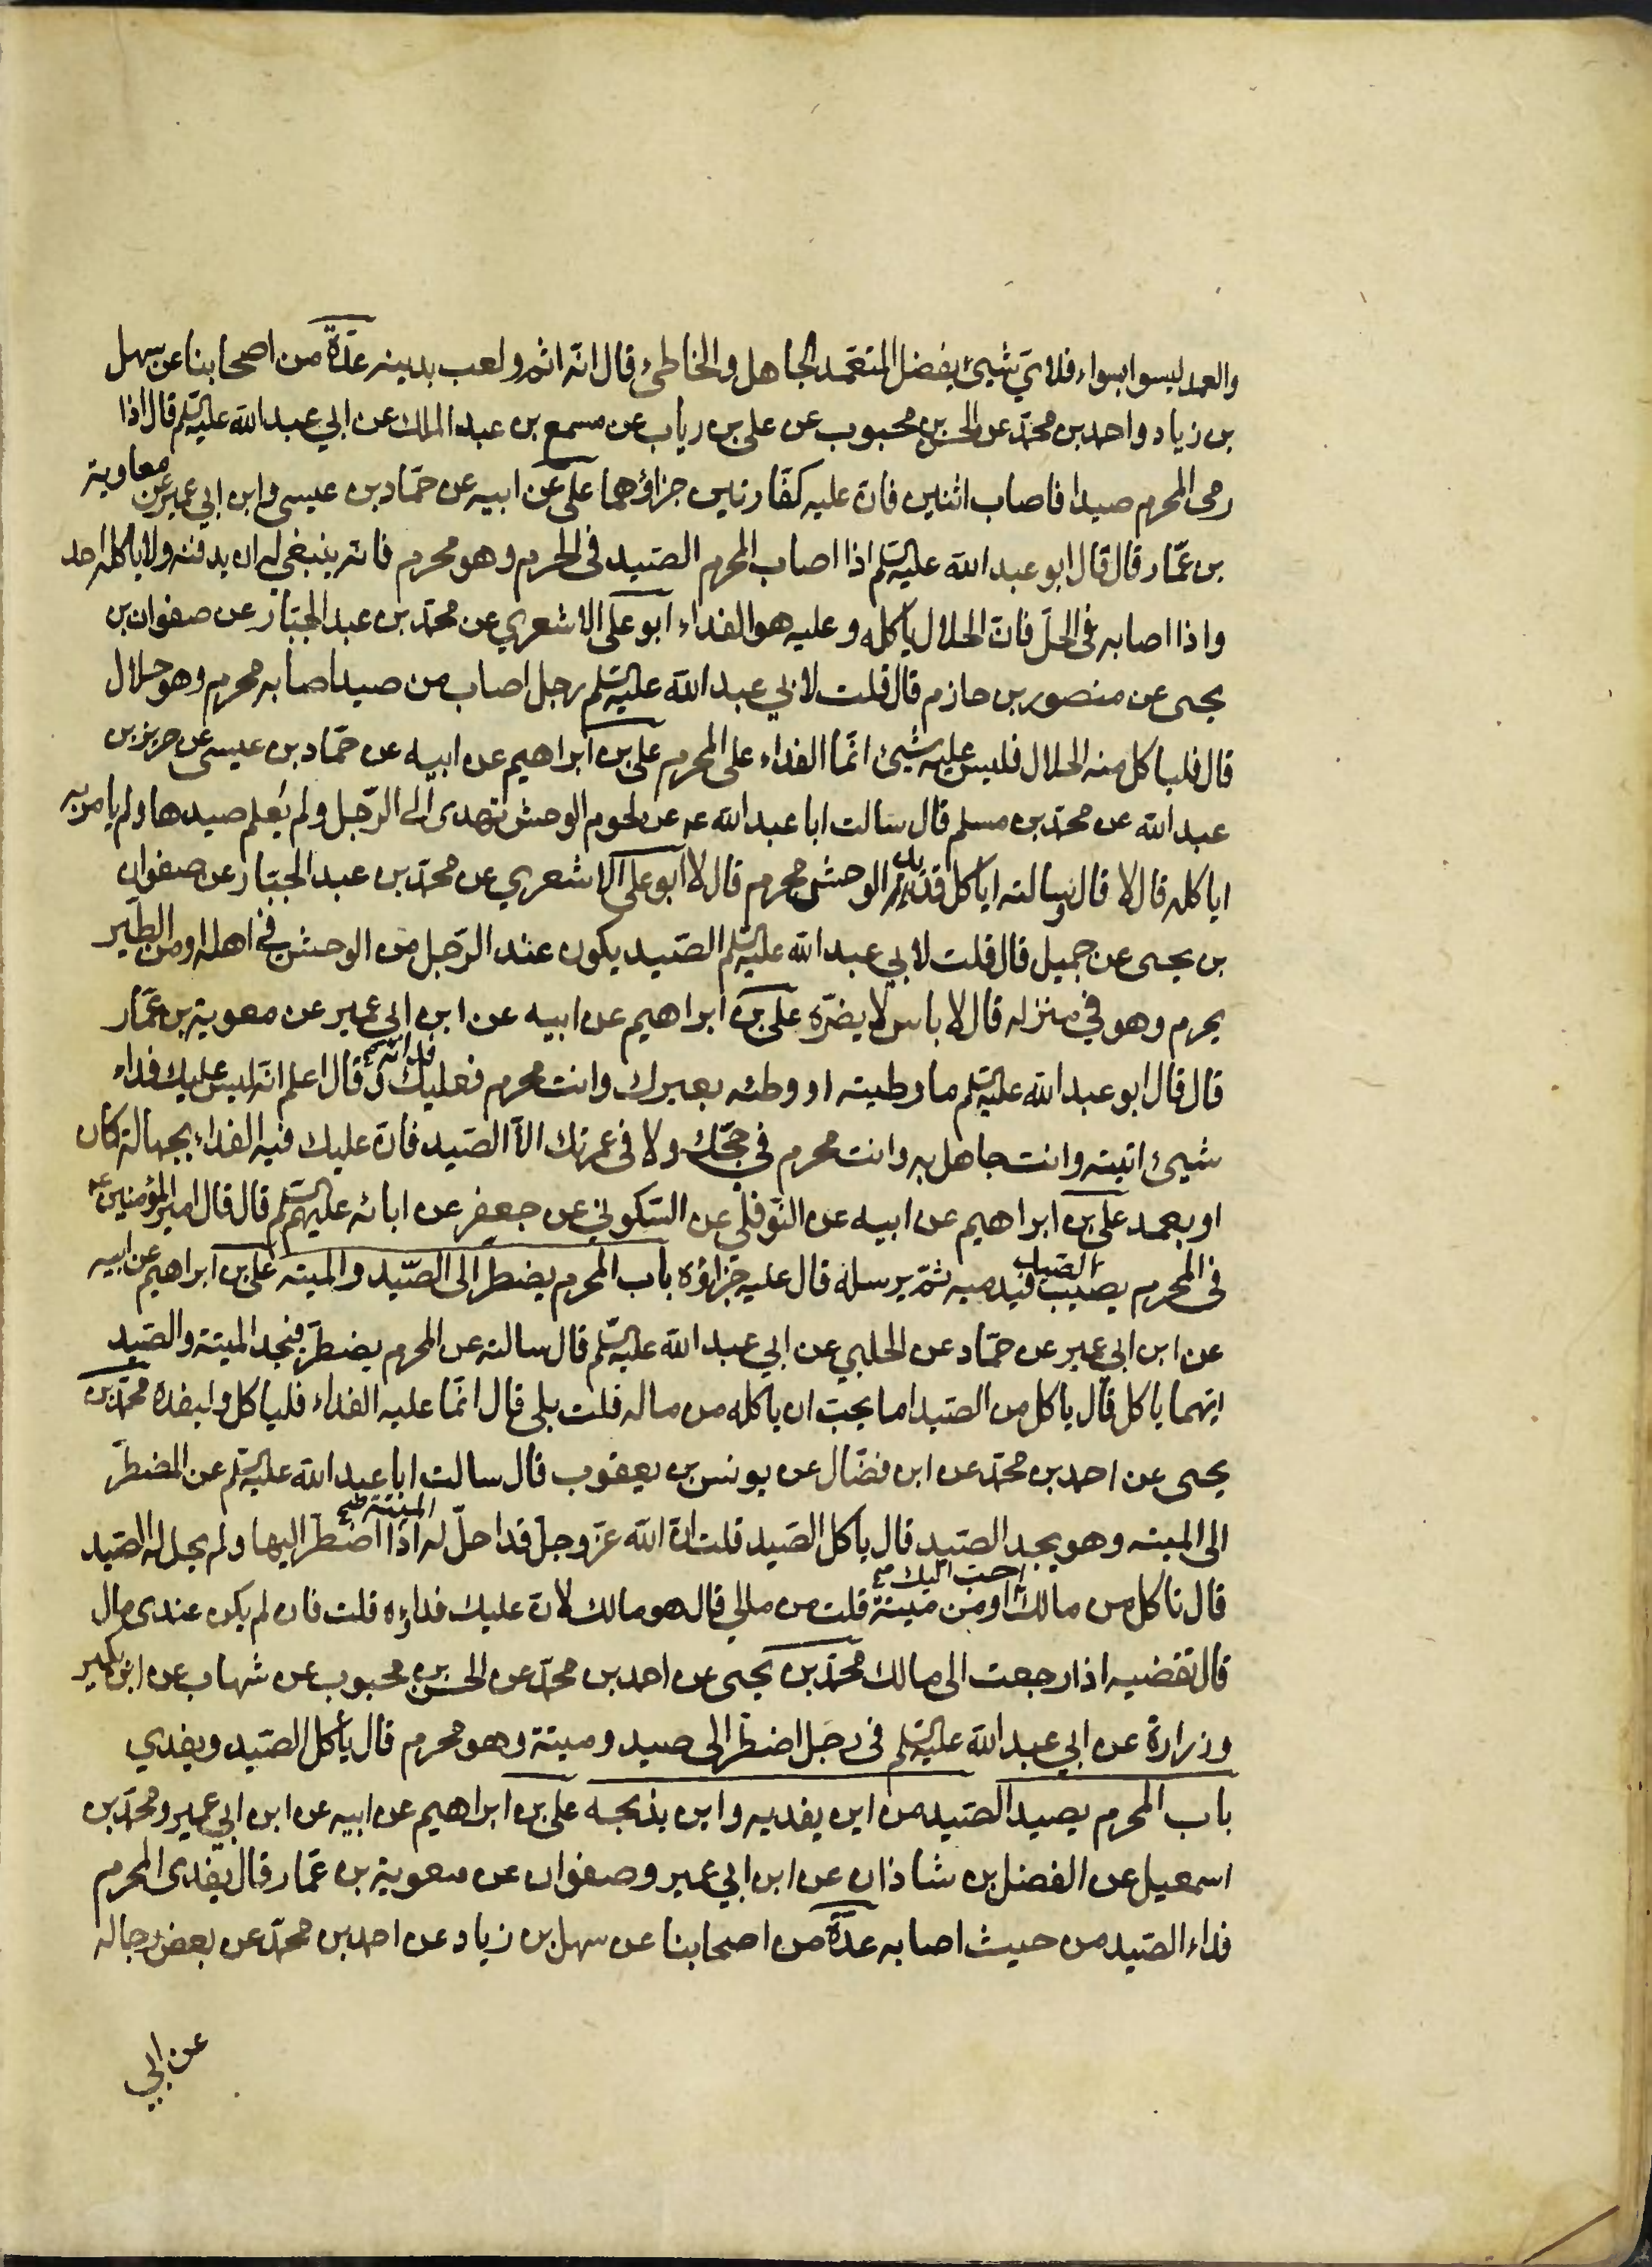 والعمد ليسوا بسواء فلاي شيئ يفضل المتعمد الجاهل والخاطئ قال انّه اثم ولعب بدينه عدّة من اصحابنا عن سهل
بن زياد واحمد بن محمّد عن الحسن بن محبوب عن علي بن رياب عن مسمع بن عبد الملك عن ابي عبد الله عليه السلم قال اذا
رمى المحرم صيدا فاصاب اثنين فانّ عليه كفّارتين جزاؤهما علي عن ابيه عن حمّاد بن عيسى وابن ابي عمير عن معاوية
بن عمّار قال قال ابو عبد الله عليه السلم اذا اصاب المحرم الصّيد في الحرم وهو محرم فانّه ينبغي له ان يدفنه ولا ياكله احد
واذا اصابه في الحلّ فانّ الحلال ياكله وعليه هو الفداء ابو علي الاشعري عن محمّد بن عبد الجبّار عن صفوان بن
يحيى عن منصور بن حازم قال قلت لابي عبد الله عليه السلم رجل اصاب من صيد اصابه محرم وهو حلال
قال فلياكل منه الحلال فليس عليه شيئ انّما الفداء على المحرم علي بن ابراهيم عن ابيه عن حمّاد بن عيسى عن حريز بن
عبد الله عن محمّد بن مسلم قال سالت ابا عبد الله عه عن لحوم الوحش تهدى الى الرّجل ولم يعلم صيدها ولم يامر به
اياكله قال لا قال وسالته اياكل قديد الوحش محرم قال لا ابو علي الاشعري عن محمّد بن عبد الجبّار عن صفوان
بن يحيى عن جميل قال قلت لابي عبد الله عليه السلم الصّيد يكون عند الرّجل من الوحش في اهله او من الطّير
يحرم وهو في منزله قال لا باس لا يضرّه علي بن ابراهيم عن ابيه عن ابن ابي عمير عن معوية بن عمّار
قال قال ابو عبد الله عليه السلم ما وطيته او وطئه بعيرك وانت محرم فعليك فداؤه قال اعلم انّه ليس عليك فداء
شيئ اتيته وانت جاهل به وانت محرم في حجّك ولا في عمرتك الّا الصّيد فانّ عليك فيه الفداء بجهالة كان
او بعمد علي بن ابراهيم عن ابيه عن النّوفلي عن السّكوني عن جعفر عن ابائه عليهم السلم قال قال امير المؤمنين عه
في المحرم يصيب الصّيد فيدميه ثمّ يرسله قال عليه جزاؤه باب المحرم يضطر الى الصّيد والميته علي بن ابراهيم عن ابيه
عن ابن ابي عمير عن حمّاد عن الحلبي عن ابي عبد الله عليه السّلم قال سالته عن المحرم يضطرّ فيجد الميتة والصّيد
ايّهما ياكل قال ياكل من الصّيد اما يحبّ ان ياكله من ماله قلت بلى قال انّما عليه الفداء فلياكل وليفده محمّد بن
يحيى عن احمد بن محمّد عن ابن فضّال عن يونس بن يعقوب قال سالت ابا عبد الله عليه السلم عن المضطرّ
الى الميته وهو يجد الصّيد قال ياكل الصّيد قلت انّ الله عزّ وجلّ قد احلّ له الميتة اذا اضطرّ اليها ولم يحل له الصّيد
قال تاكل من مالك احبّ اليك او من ميتة قلت من مالي قال هو مالك لانّ عليك فداؤه قلت فان لم يكن عندي مال
قال تقضيه اذا رجعت الى مالك محمّد بن يحيى عن احمد بن محمّد عن الحسن بن محبوب عن شهاب عن ابن بكير
وزرارة عن ابي عبد الله عليه السلم في رجل اضطرّ الى صيد وميتة وهو محرم قال يأكل الصّيد ويفدي
باب المحرم يصيد الصّيد من اين يفديه واين يذبحه علي بن ابراهيم عن ابيه عن ابن ابي عمير ومحمّد بن
اسمعيل عن الفضل بن شاذان عن ابن ابي عمير وصفوان عن معوية بن عمّار قال يفدى المحرم
فداء الصّيد من حيث اصابه عدّة من اصحابنا عن سهل بن زياد عن احمد بن محمّد عن بعض رجاله
عن ابي